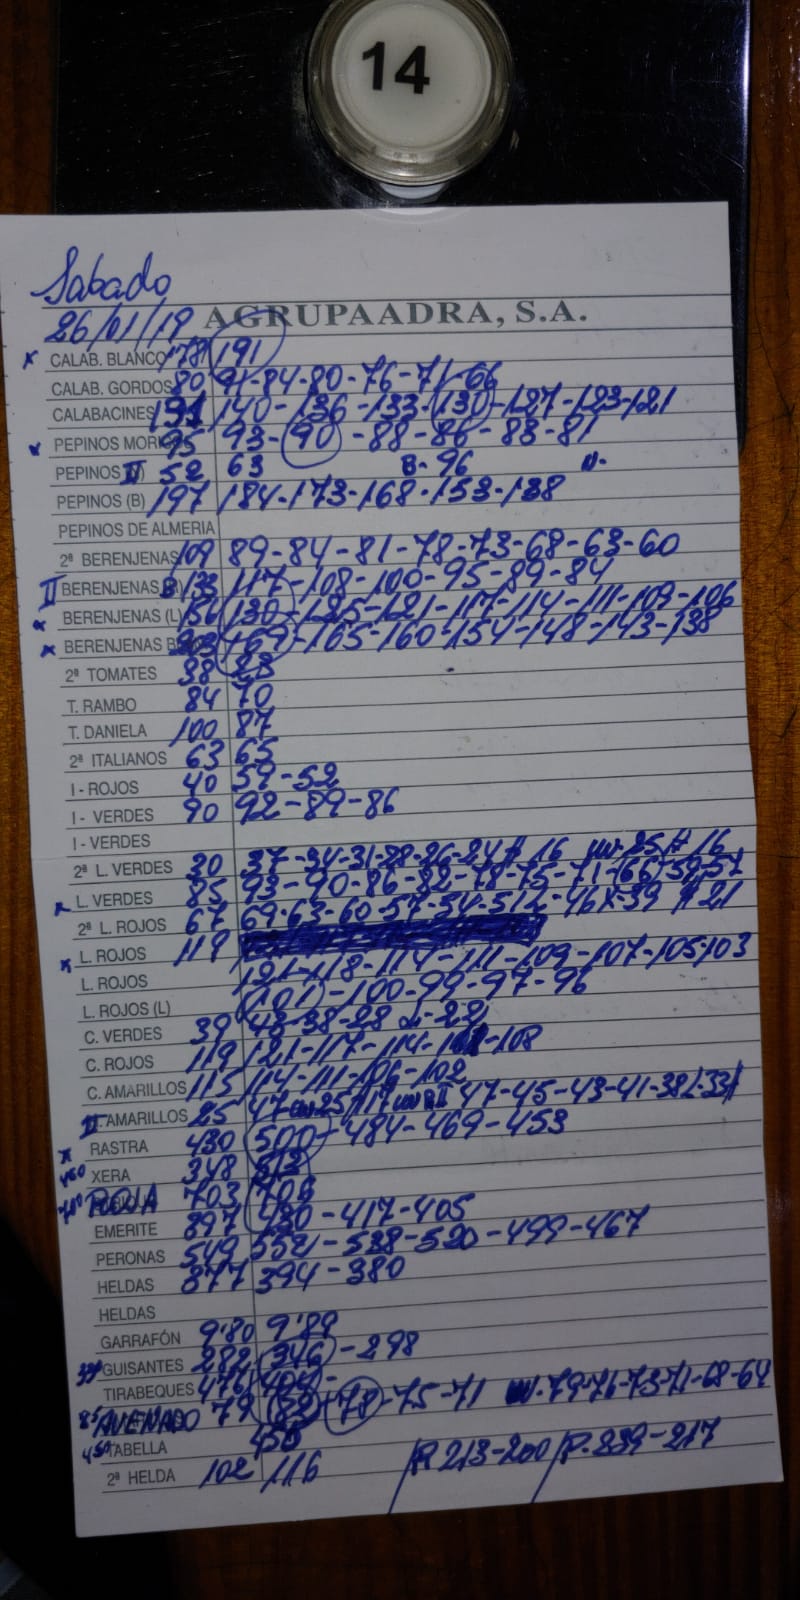 14
Sabado
26/01/19 AGRUPAADRA, S.A.
x CALAB. BLANCO 178 191
CALAB. GORDOS 80 91-84-80-76-71-66
CALABACINES 191 140-136-133-130-127-123-121
x PEPINOS 95 93-90-88-86-83-81
PEPINOS 52 63 B-96
PEPINOS (B) 197 184-173-168-153-138
PEPINOS DE ALMERIA
2ª BERENJENAS 109 89-84-81-78-73-68-63-60
II BERENJENAS 133 117-108-100-95-89-84
x BERENJENAS (L) 156 130-125-121-117-114-111-109-106
x BERENJENAS 203 169-165-160-154-148-143-138
2ª TOMATES 38
T. RAMBO 84 70
T. DANIELA 100 87
2ª ITALIANOS 63 65
I - ROJOS 40 59-52
I - VERDES 90 92-89-86
I - VERDES
2ª L. VERDES 30 37-34-31-28-26-24 16 25 16
x L. VERDES 85 93-90-86-82-78-75-71-66-59-57
2ª L. ROJOS 67 69-63-60-57-54-51-46-39 21
x L. ROJOS 119
L. ROJOS 121-118-114-111-109-107-105-103
L. ROJOS (L) 101-100-99-97-96
C. VERDES 39 48-38-28 22
C. ROJOS 119 121-117-114- -108
C. AMARILLOS 115 114-111-106-102
AMARILLOS 25 47 25 17 47-45-43-41-38 33
x RASTRA 430 500-484-469-453
XERA 348 512
703 706
EMERITE 397 430-417-405
PERONAS 549 552-538-520-499-467
HELDAS 377 394-380
HELDAS
GARRAFÓN 9'80 9'89
GUISANTES 282 346-298
TIRABEQUES 476 404-
79 82-78-75-71 79-76-73-71-68-64
450 TABELLA 456
2ª HELDA 102 116 R 213-200 P. 239-217